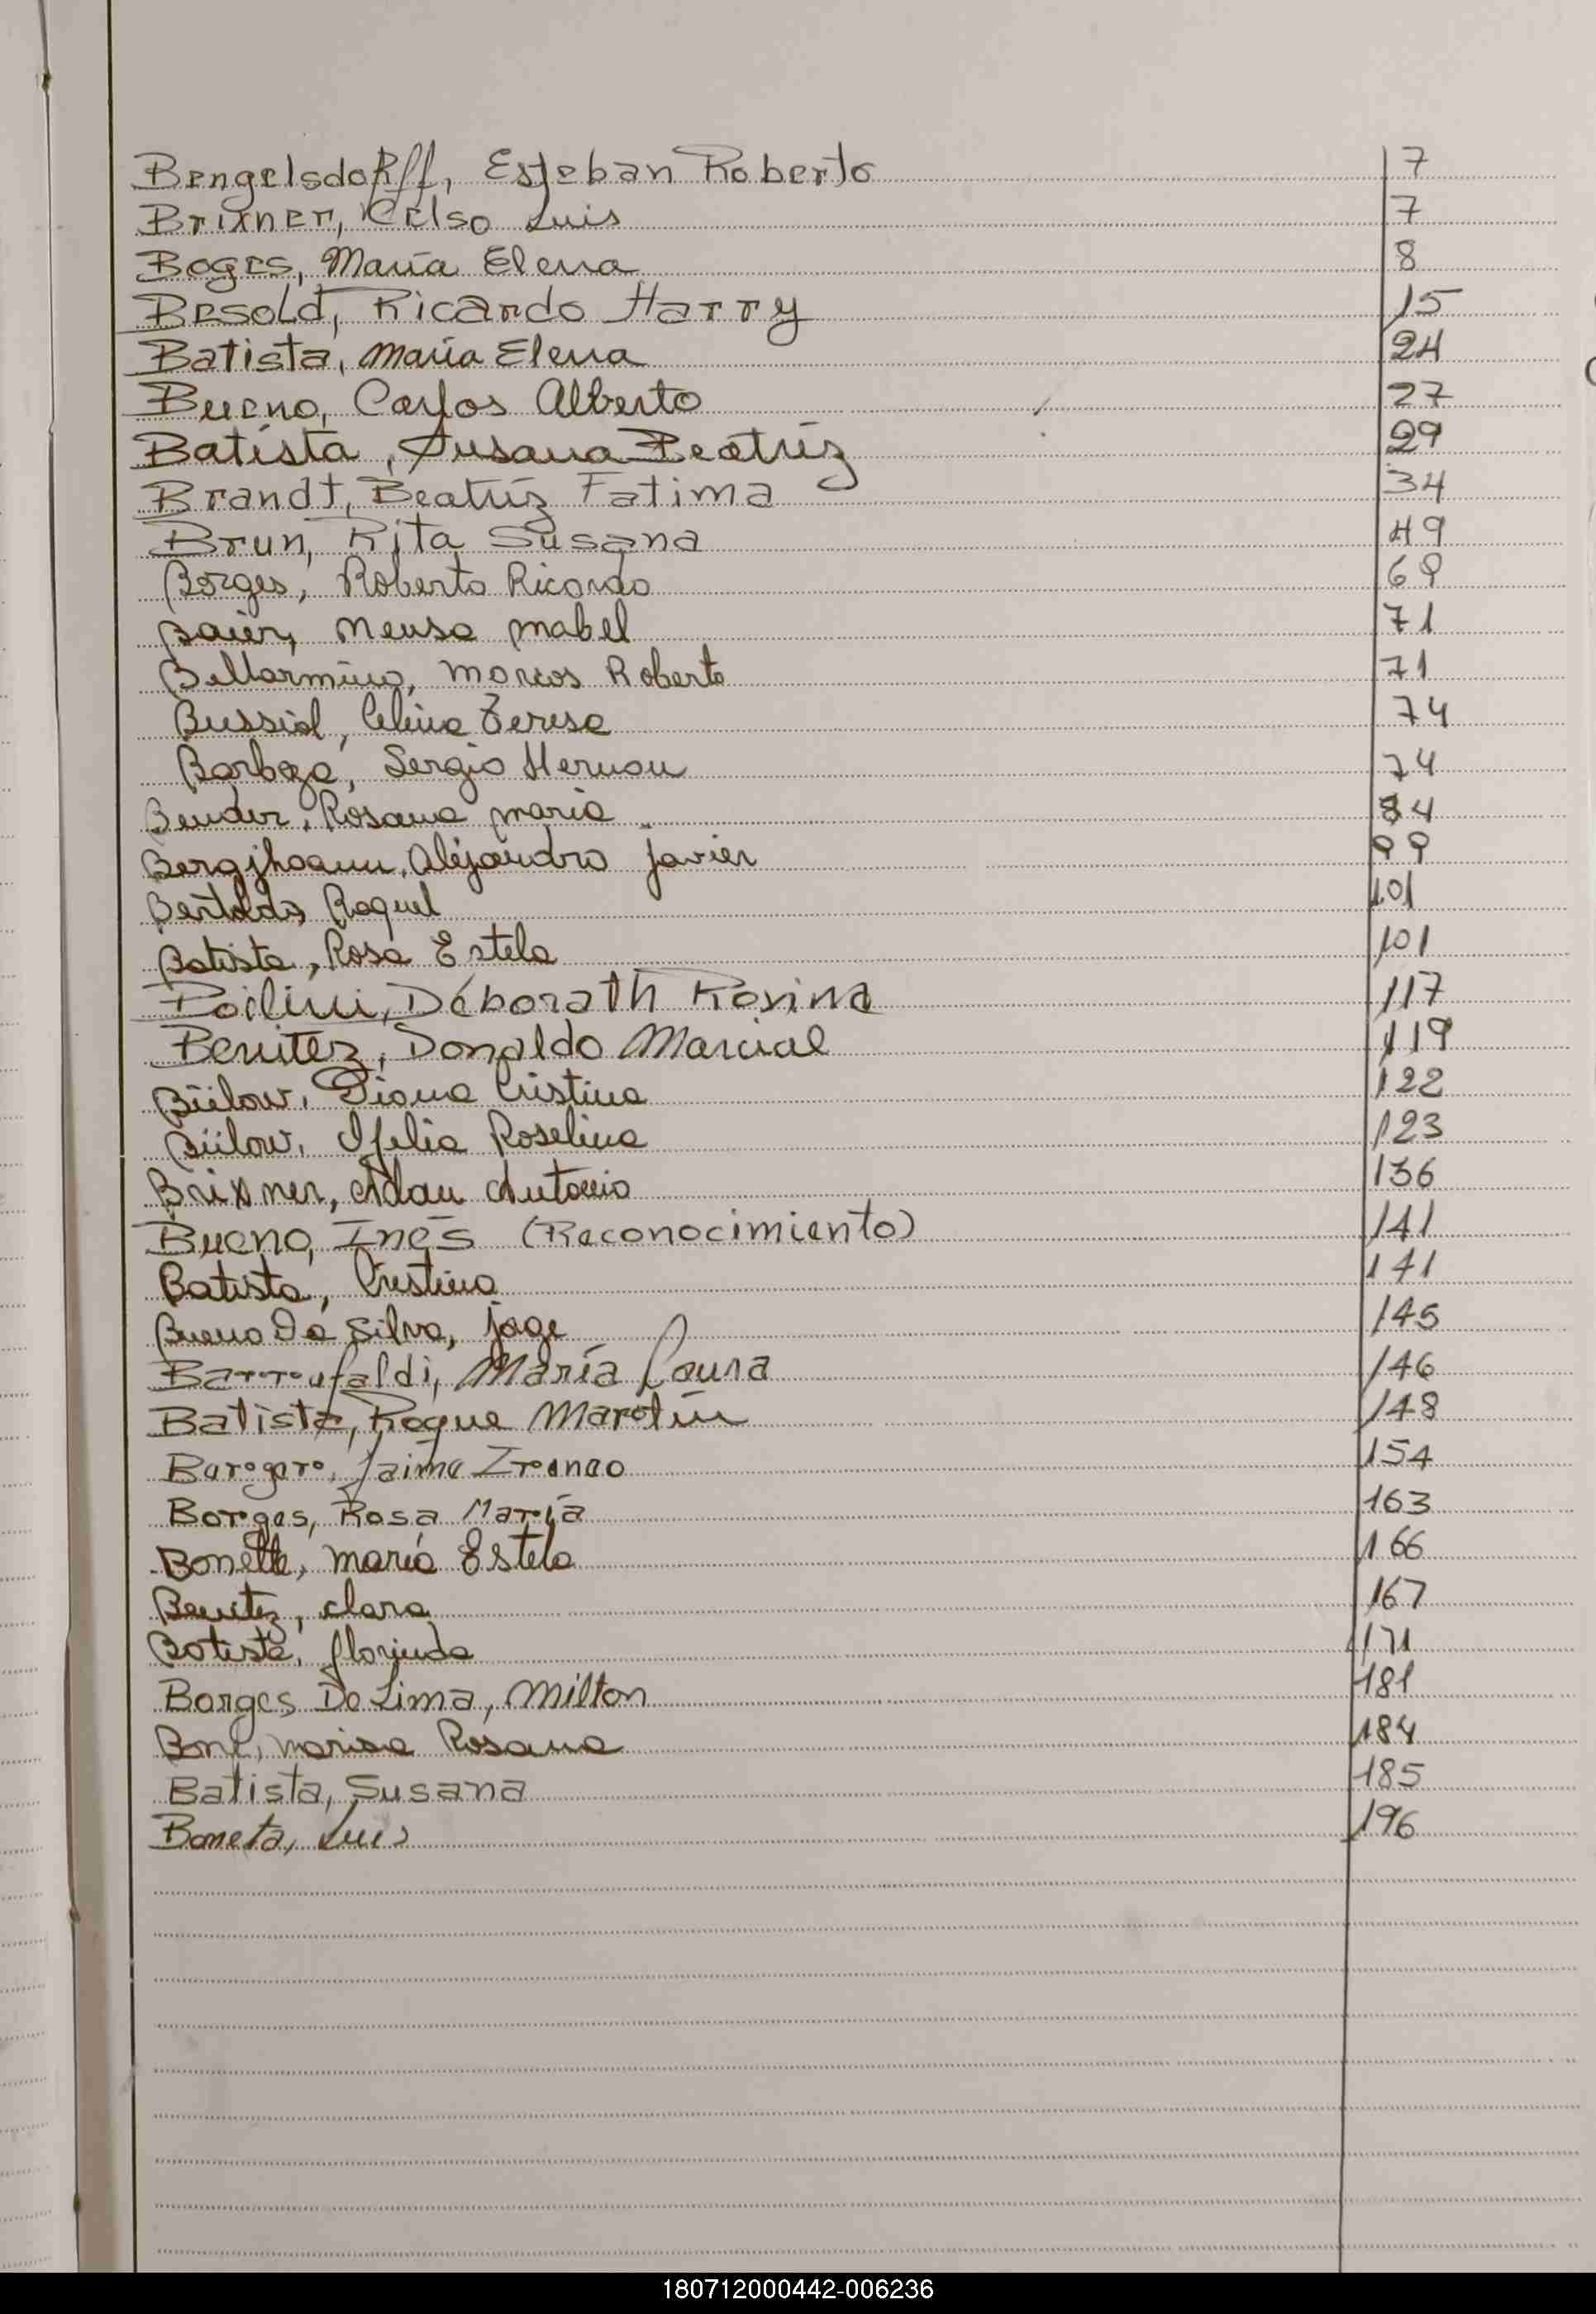 Bengelsdorff, Esteban Roberto 7
Brixner, Celso Luis 7
Boges, María Elena 8
Besold, Ricardo Harry 15
Batista, María Elena 24
Bueno, Carlos Alberto 27
Batista, Susana Beatríz 29
Brandt, Beatríz Fatima 34
Brun, Rita Susana 49
Borges, Roberto Ricardo 69
Baier, Neusa Mabel 71
Bellarmino, Marcos Roberto 71
Bussiol, Celina Teresa 74
Barboza, Sergio Hernan 74
Bender, Rosana Maria 84
Bergjhoann, Alejandro Javier 99
Bertoldo, Raquel 101
Batista, Rosa Estela 101
Déborath Rosina 117
Benitez, Donaldo Marcial 119
Büllow, Diana Cristina 122
Büllow, Ofelia Roselina 123
Brixner, Adan Antonio 136
Bueno, Inés (Reconocimiento) 141
Batista, Cristina 141
Bueno Da Silva, Jage 145
Barroufaldi, María Laura 146
Batista, Roque Marotin 148
Jaime Iraneo 154
Borges, Rosa María 163
Bonette, María Estela 166
Benitez, Clara 167
Batista, Florinda 171
Borges De Lima, Milton 181
Boné, Marisa Rosana 184
Batista, Susana 185
Boneta, Luis 196
180712000442-006236